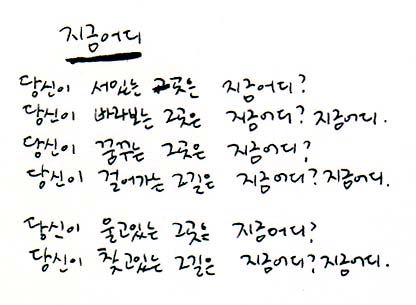 지금어디
당신이 서있는 그곳은 지금어디?
당신이 바라보는 그곳은 지금어디? 지금어디.
당신이 꿈꾸는 그곳은 지금어디?
당신이 걸어가는 그길은 지금어디? 지금어디.
당신이 울고있는 그곳은 지금어디?
당신이 찾고있는 그길은 지금어디? 지금어디.